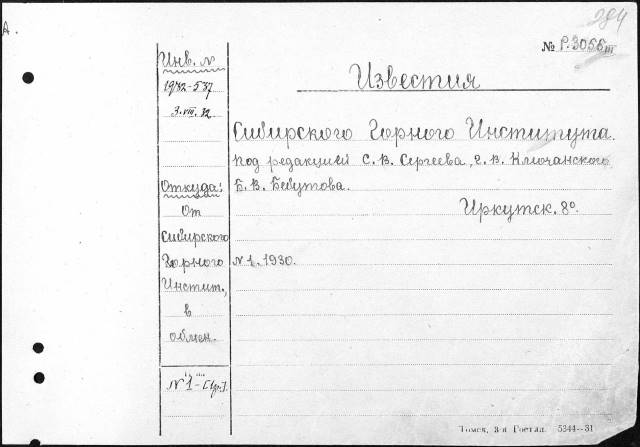 А.
284
№ Р.3066 III
Инв. №
1932-537
3.VIII.32
Откуда:
От
Сибирского
Горного
Инстит.,
в
обмен.
№1-
Известия
Сибирского Горного Института.
Под редакцией С. В. Сергеева, Г. В. Ключанского
Б. В. Бебутова.
Иркутск. 8°.
№ 1. 1930.
Томск, 3-я Гостип. 5344—31